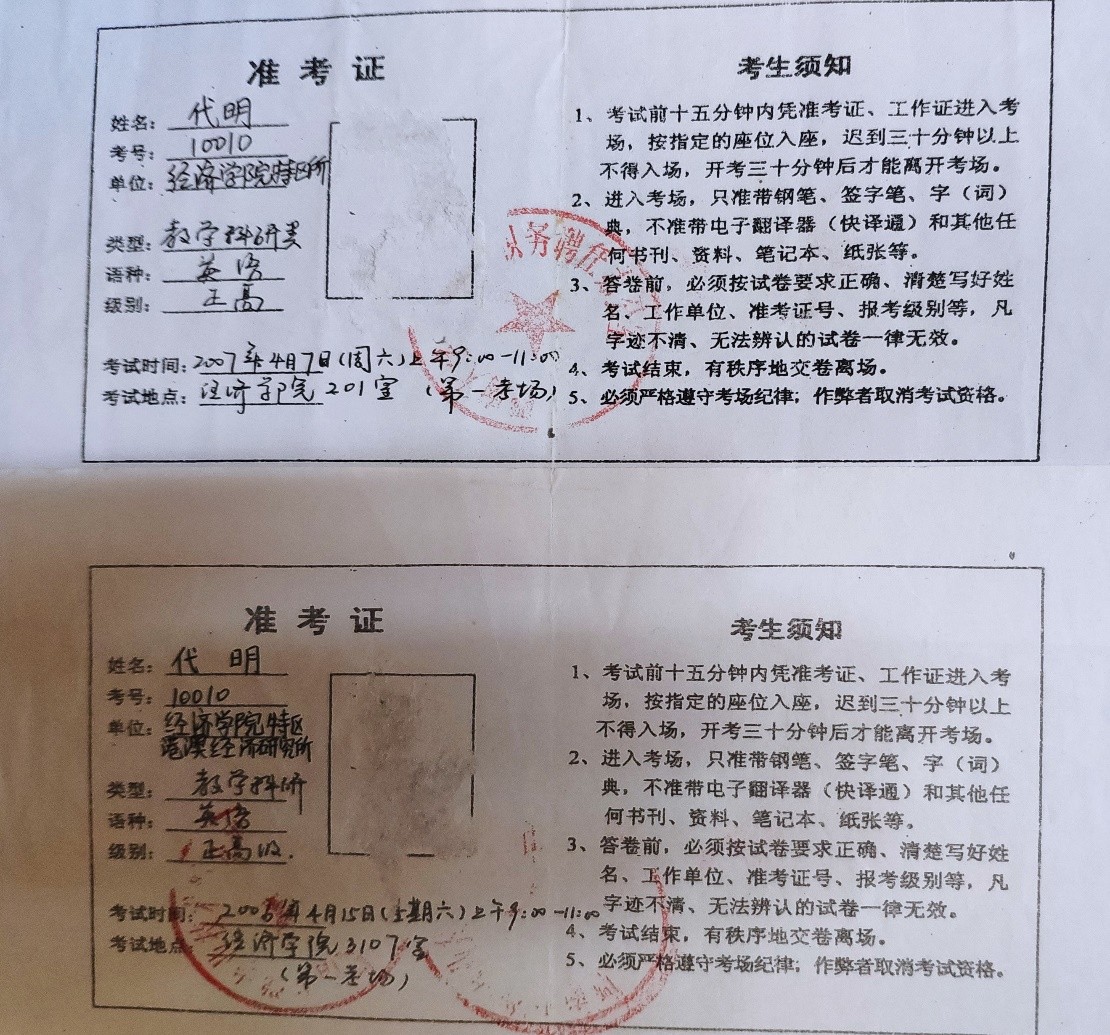 准考证
姓名：代明
考号：10010
单位：经济学院特区所
类型：教学科研类
语种：英语
级别：正高
考试时间：2007年4月7日(周六)上午9:00-11:00
考试地点：经济学院201室（第一考场）
考生须知
1、考试前十五分钟内凭准考证、工作证进入考
场，按指定的座位入座，迟到三十分钟以上
不得入场，开考三十分钟后才能离开考场。
2、进入考场，只准带钢笔、签字笔、字（词）
典，不准带电子翻译器（快译通）和其他任
何书刊、资料、笔记本、纸张等。
3、答卷前，必须按试卷要求正确、清楚写好姓
名、工作单位、准考证号、报考级别等，凡
字迹不清、无法辨认的试卷一律无效。
4、考试结束，有秩序地交卷离场。
5、必须严格遵守考场纪律；作弊者取消考试资格。
务聘任
准考证
姓名：代明
考号：10010
单位：经济学院特区
港澳经济研究所
类型：教学科研
语种：英语
级别：正高级
考试时间：2006年4月15日(星期六)上午9:00-11:00
考试地点：经济学院3107室
（第一考场）
考生须知
1、考试前十五分钟内凭准考证、工作证进入考
场，按指定的座位入座，迟到三十分钟以上
不得入场，开考三十分钟后才能离开考场。
2、进入考场，只准带钢笔、签字笔、字（词）
典，不准带电子翻译器（快译通）和其他任
何书刊、资料、笔记本、纸张等。
3、答卷前，必须按试卷要求正确、清楚写好姓
名、工作单位、准考证号、报考级别等，凡
字迹不清、无法辨认的试卷一律无效。
4、考试结束，有秩序地交卷离场。
5、必须严格遵守考场纪律；作弊者取消考试资格。